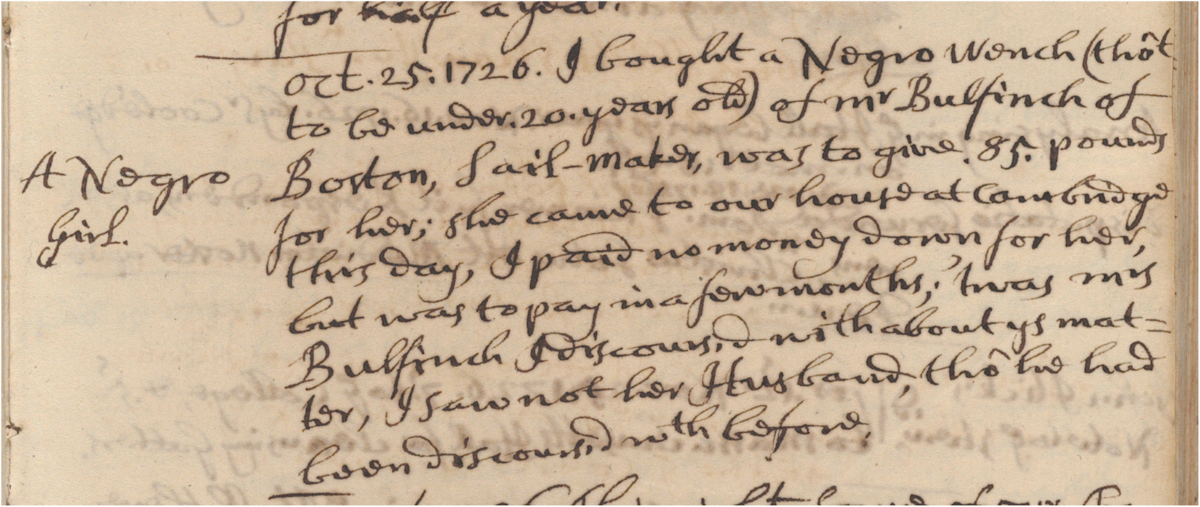 for half a year.
Oct. 25. 1726. I bought a Negro Wench (thôt
to be under. 20. years old) of mr Bulfinch of
A Negro Boston, Sail-maker, was to give. 85. pounds
Girl. for her; she came to our house at Cambridge
this day, I paid no money down for her,
but was to pay in a few months; 'twas mis
Bulfinch I discours'd with about ys mat=
ter, I saw not her Husband, thô he had
been discours'd wth before.